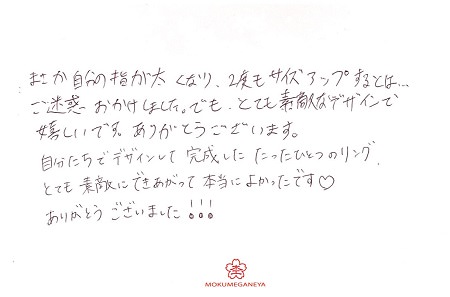 まさか自分の指が太くなり、2度もサイズアップするとは…
ご迷惑おかけしました。でも、とても素敵なデザインで
嬉しいです。ありがとうございます。
自分たちでデザインして完成したたったひとつのリング、
とても素敵にできあがって本当によかったです♡
ありがとうございました!!!
MOKUMEGANEYA